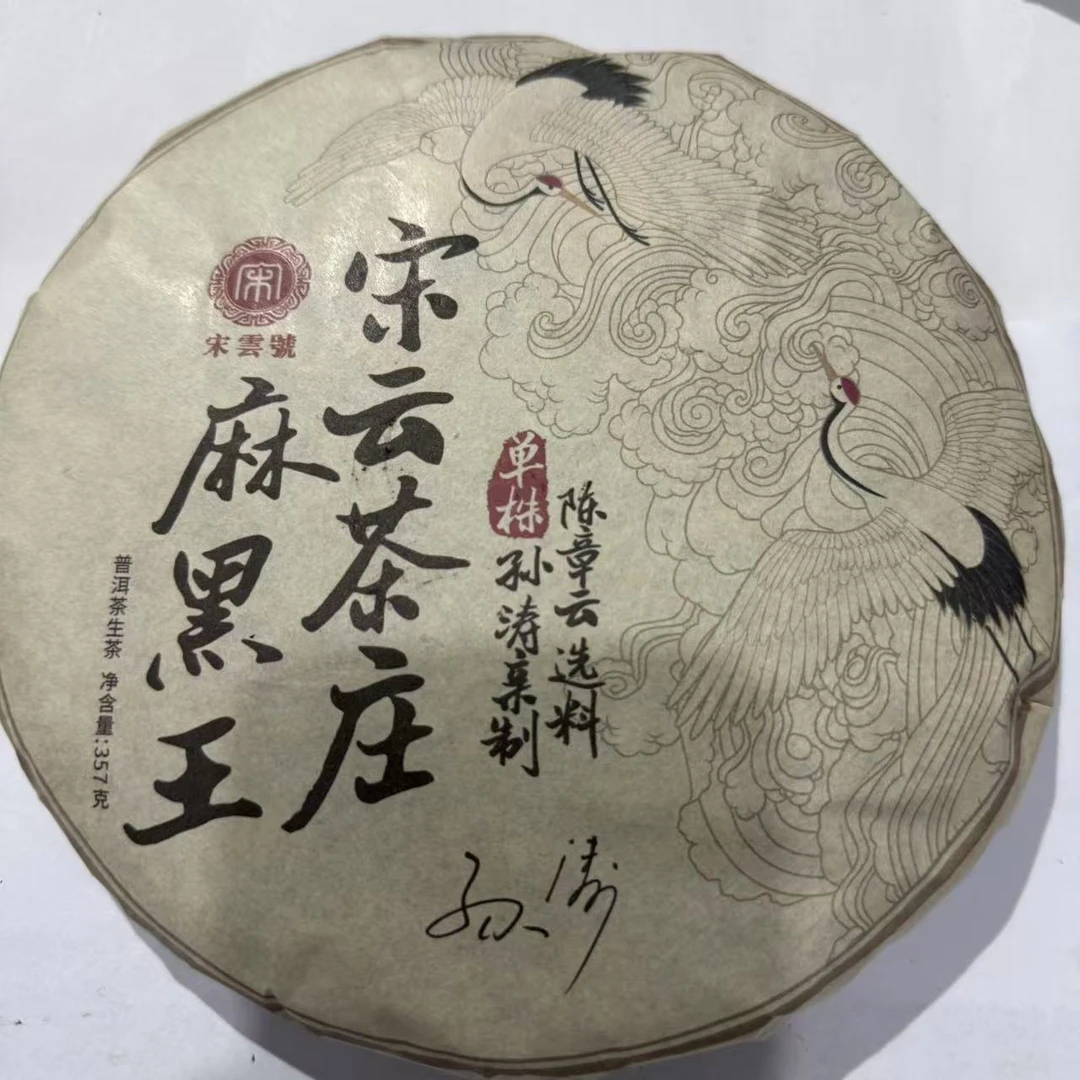 宋云茶庄
麻黑王
宋雲號
宋
单株
陈章云选料
孙涛亲制
普洱茶生茶 净含量:357克
孙涛